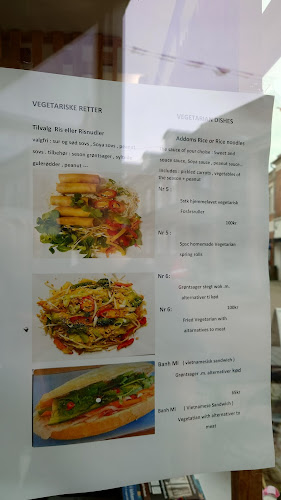 VEGETARISKE RETTER
VEGETARIAN DISHES
Tilvalg Ris eller Risnudler
valgfri : sur og sød sovs , Soya sovs , peanut
sovs . tilbehør : sæson grøntsager , syltede
gulerødder , peanut ---
Addoms Rice or Rice noodles
The sauce of your choice : sweet and
sauce sause, Soya sauce , peanut sauce .
Includes : pickled carrots , vegetables of
the season + peanut
Nr 5 :
5stk hjemmelavet vegetarisk
Forårsruller
100kr
Nr 5 :
5pec homemade vegetarian
spring rolls
Nr 6:
Grøntsager stegt wok .m.
alternativer til kød
100kr
Nr 6:
Fried Vegetarian with
alternatives to meet
Banh Mi ( vietnamesisk sandwich )
Grøntsager .m. alternativer kød
65kr
Banh Mi ( Vietnamese Sandwich )
Vegetarian with alternativer to
meet